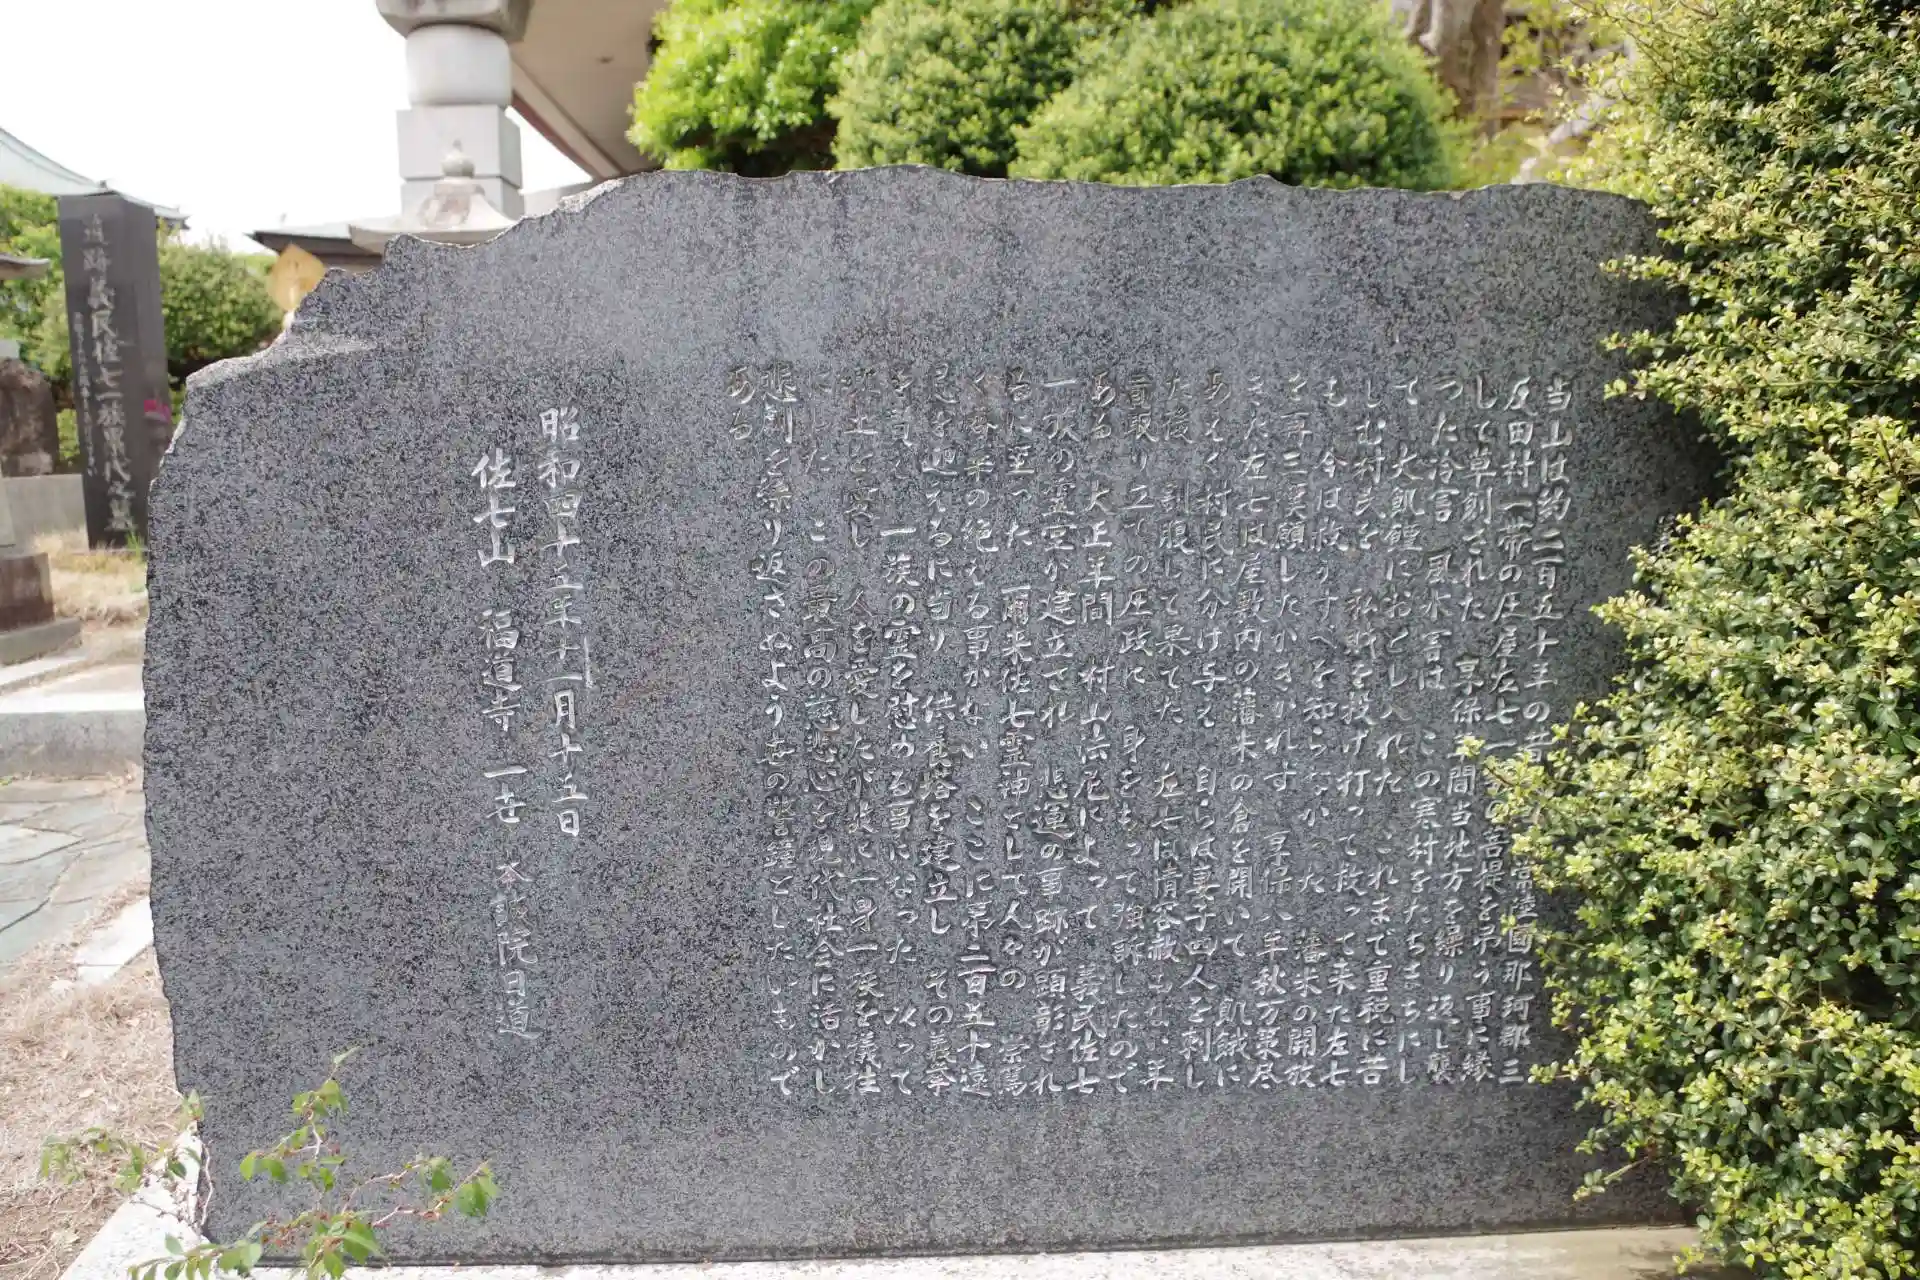 当山は約二百五十年の昔 常陸国那珂郡三
反田村一帯の庄屋左七一 の菩提を弔う事に縁
して草創された 享保年間当地方を繰り返し襲
つた冷害 風水害は この寒村をたちまちにし
て 大飢饉におとし入れた これまで重税に苦
しむ村民を 私財を投げ打って救って来た左七
も 今は救うすべを知らなかった 藩米の開放
を再三哀願したがきかれず 享保八年秋万策尽
きた左七は屋敷内の藩米の倉を開いて 飢餓に
あえぐ村民に分け与え 自らは妻子四人を刺し
た後 割腹して果てた 左七は情容赦もない年
貢取り立ての圧政に 身をもって強訴したので
ある 大正年間 村山法尼によって 義民佐七
一族の霊堂が建立され 悲運の事跡が顕彰され
るに至った 爾来佐七霊神として人々の 崇篤
く香華の絶える事がない ここに第二百五十遠
忌を迎えるに当り 供養塔を建立し その義挙
を讃え 一族の霊を慰める事になった 以って
郷土を愛し 人を愛したが故に一身一族を犠牲
にした この最高の慈悲心を現代社会に活かし
悲劇を繰り返さぬよう世の警鐘としたいもので
ある
昭和四十五年十一月十五日
佐七山 福道寺一世 本誠院日道
義民佐七一族累代之墓